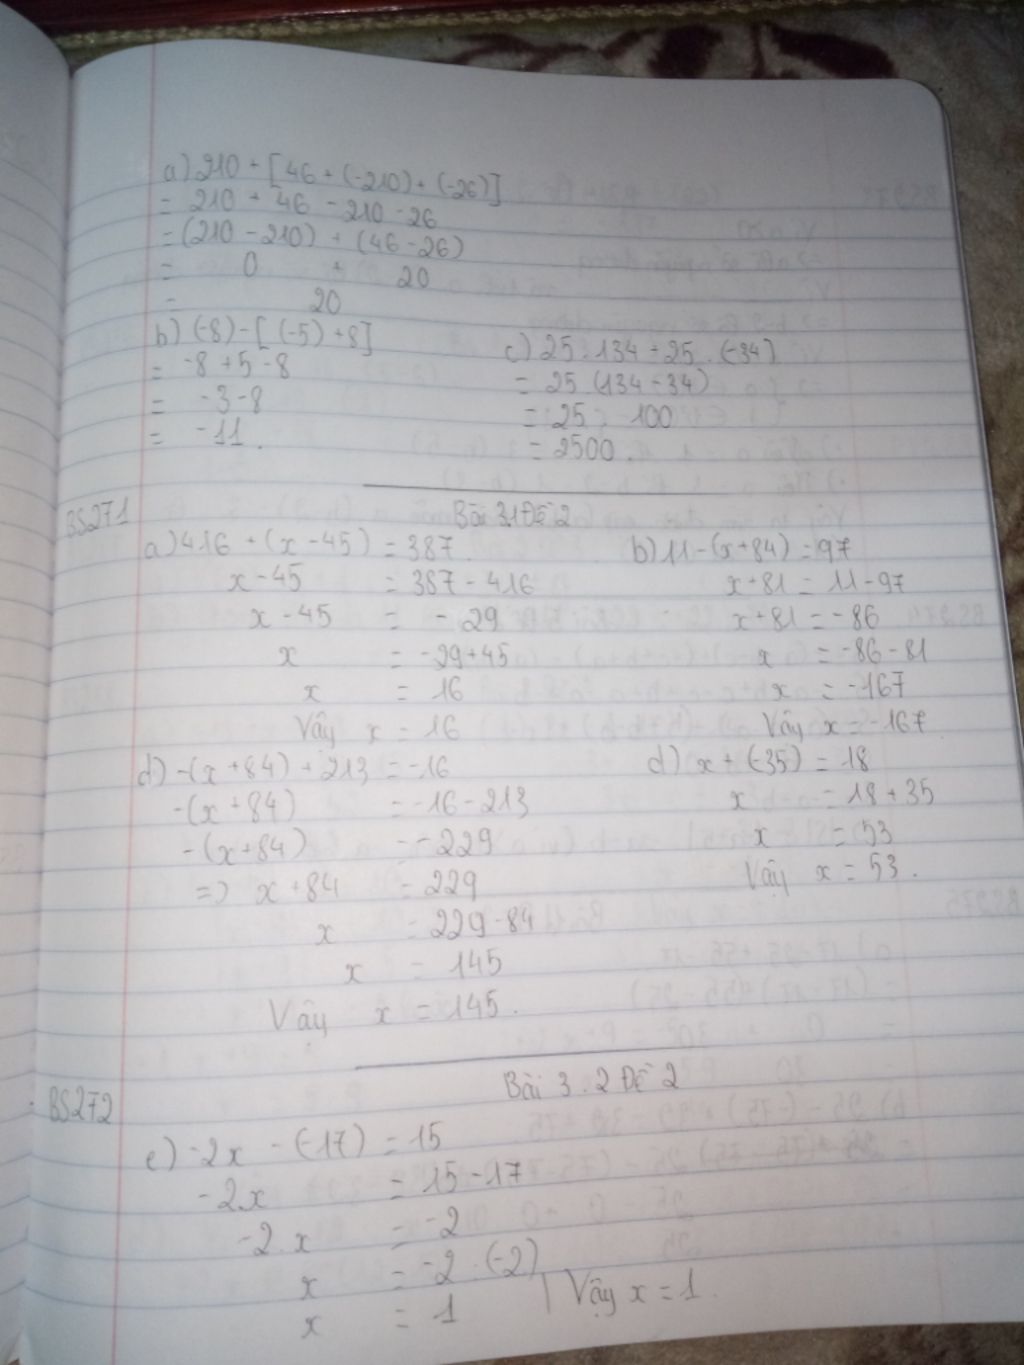 a) 210 + [46 + (-210) + (-26)]
= 210 + 46 - 210 - 26
= (210 - 210) + (46 - 26)
= 0 + 20
= 20
b) (-8) - [(-5) + 8]
= -8 + 5 - 8
= -3 - 8
= -11.
c) 25 . 134 + 25 . (-34)
= 25 (134 - 34)
= 25 . 100
= 2500.
BS271
Bài 3.1 Đề 2
a) 416 + (x - 45) = 387.
x - 45 = 387 - 416
x - 45 = - 29
x = -29 + 45
x = 16
Vậy x = 16
b) 11 - (x + 84) = 97
x + 81 = 11 - 97
x + 81 = - 86
x = -86 - 81
x = -167
Vậy x = -167
d) -(x + 84) + 213 = -16
-(x + 84) = -16 - 213
-(x + 84) = -229
=> x + 84 = 229
x = 229 - 84
x = 145
Vậy x = 145.
d) x + (-35) = 18
x = 18 + 35
x = 53
Vậy x = 53.
BS272
Bài 3.2 Đề 2
e) -2x - (-17) = 15
-2.x = 15 - 17
-2.x = -2
x = -2 . (-2)
x = 1
Vậy x = 1.